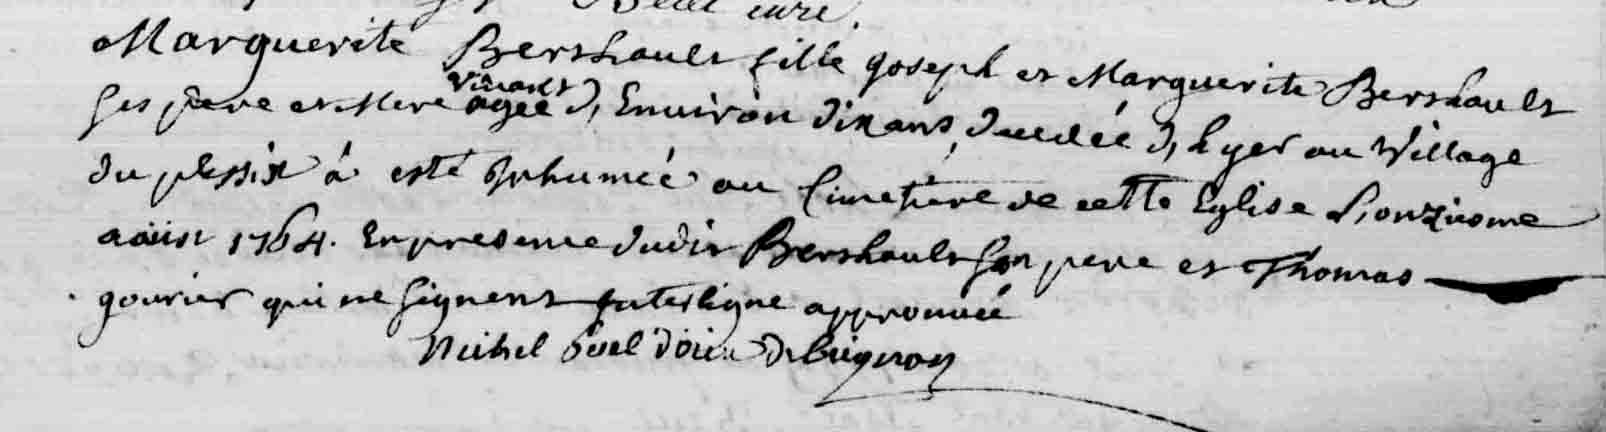 curé.
Marguerite Bershault fille Joseph et Marguerite Bershault
vivants
ses père et Mere agée d, Environ dix ans, decedée d, hyer au Village
du plessix à esté Inhumée au Cimetière de cette Eglise L'onzieme
aoùst 1764. En presence dudit Bershault son pere et Thomas
gourier qui ne signent Interligne approuvée
Michel